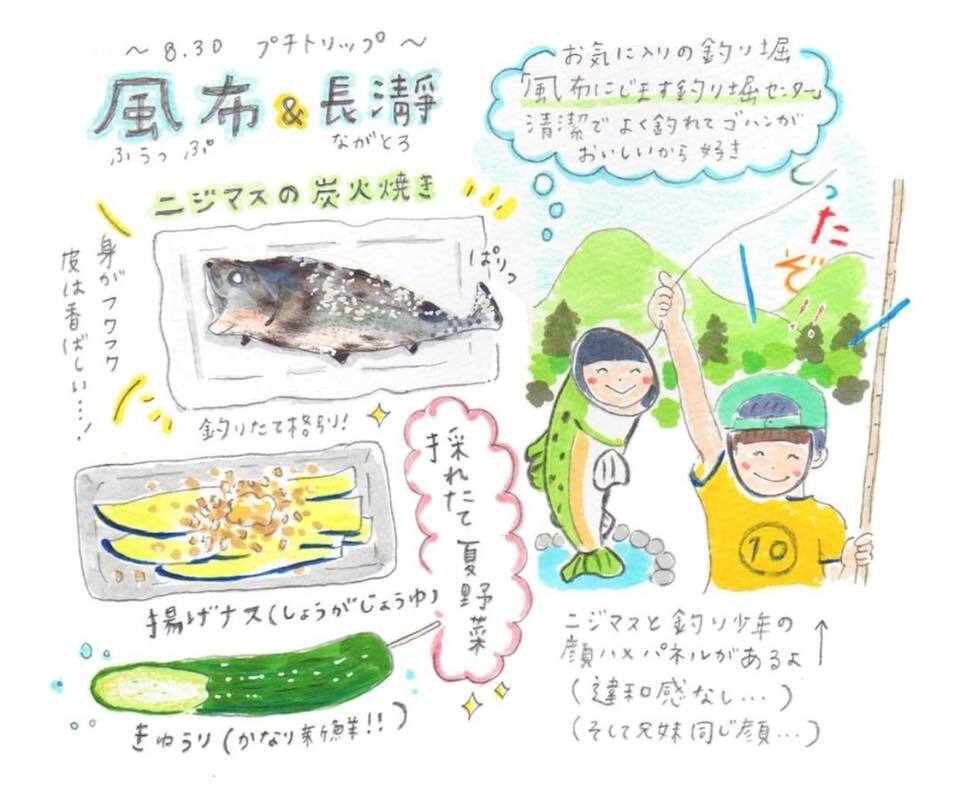 ～8.30 プチトリップ～
風布&長瀞
ふうっぷ
ながとろ
ニジマスの炭火焼き
身がフワフワ
皮は香ばしい…!
ぱりっ
釣りたて格別!
採れたて夏野菜
揚げナス(しょうがじょうゆ)
きゅうり(かなり新鮮!!)
お気に入りの釣り堀
「風布にじます釣り堀センター」
清潔でよく釣れてゴハンが
おいしいから好き
ったぞ!!
10
ニジマスと釣り少年の
顔ハメパネルがあるよ↑
(違和感なし…)
(そして兄妹同じ顔…)